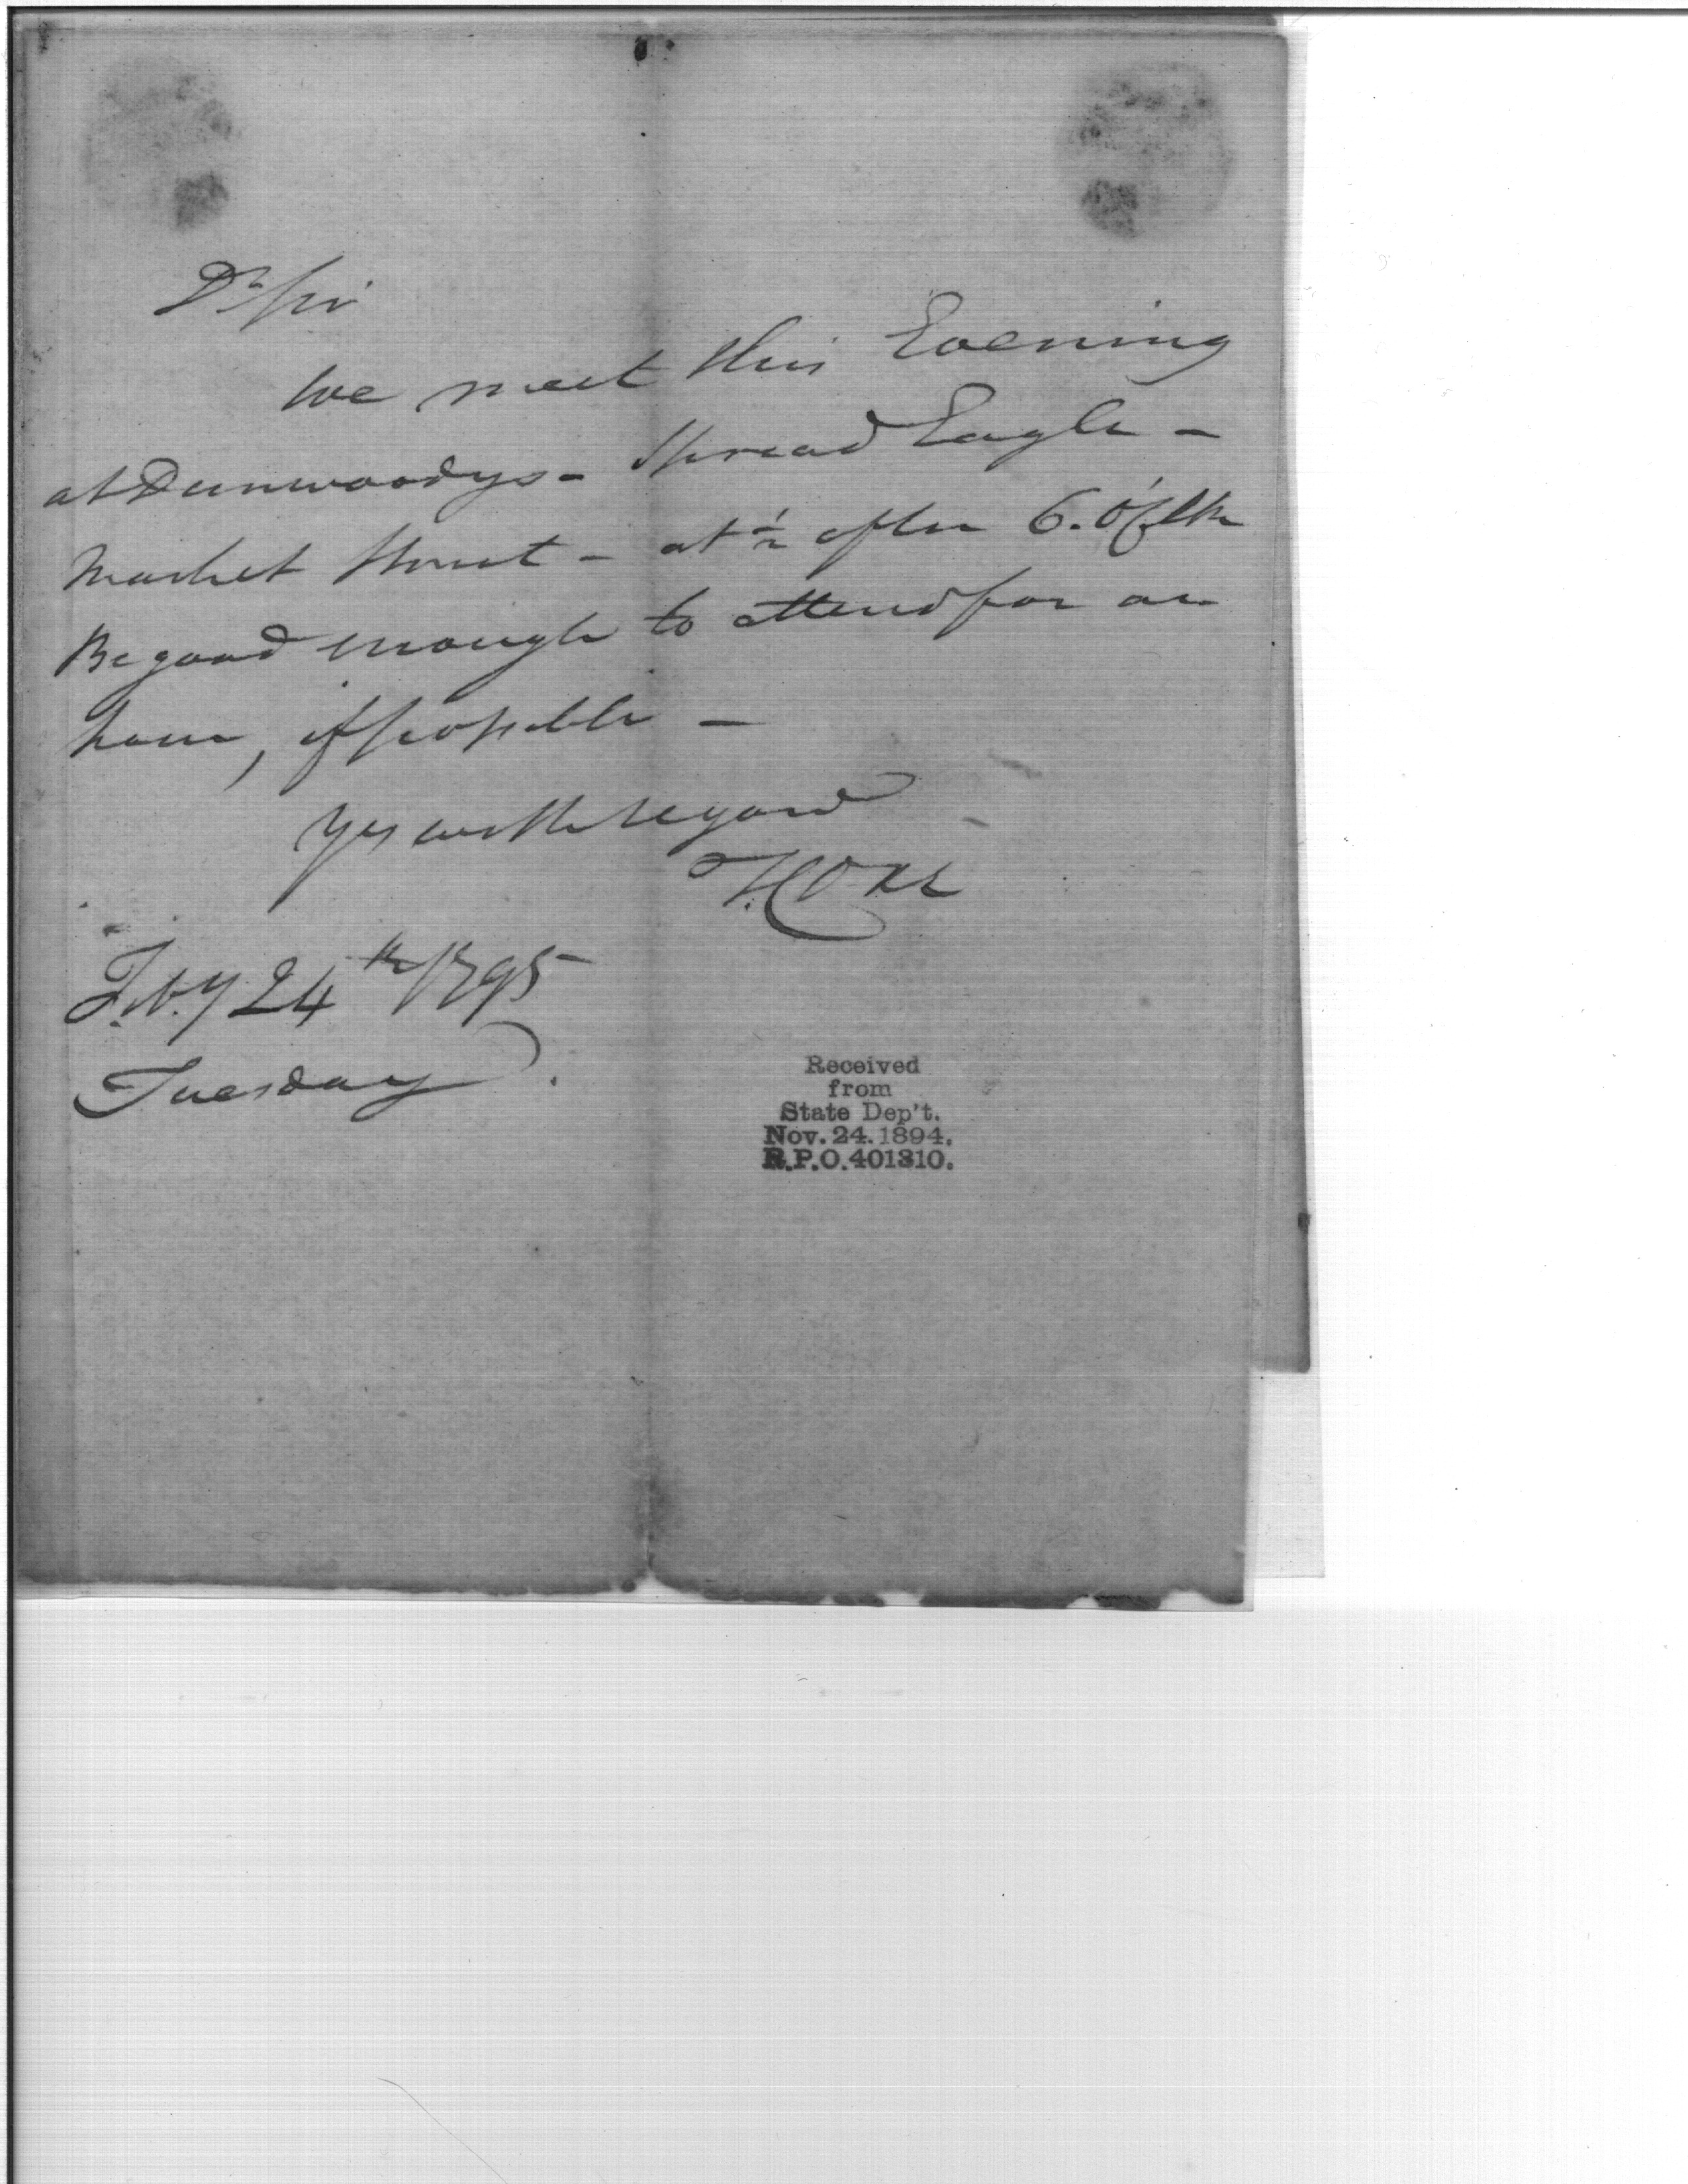 Dr Sir
We meet this Evening
at Dunwoodys - Spread Eagle -
Market Street - at 1/2 after 6. O'Clk
Be good enough to attend for an
hour, if possible -
Yrs with regard
Feby 24th 1795
Tuesday.
Received
from
State Dep't.
Nov. 24. 1894.
R.P.O. 401310.